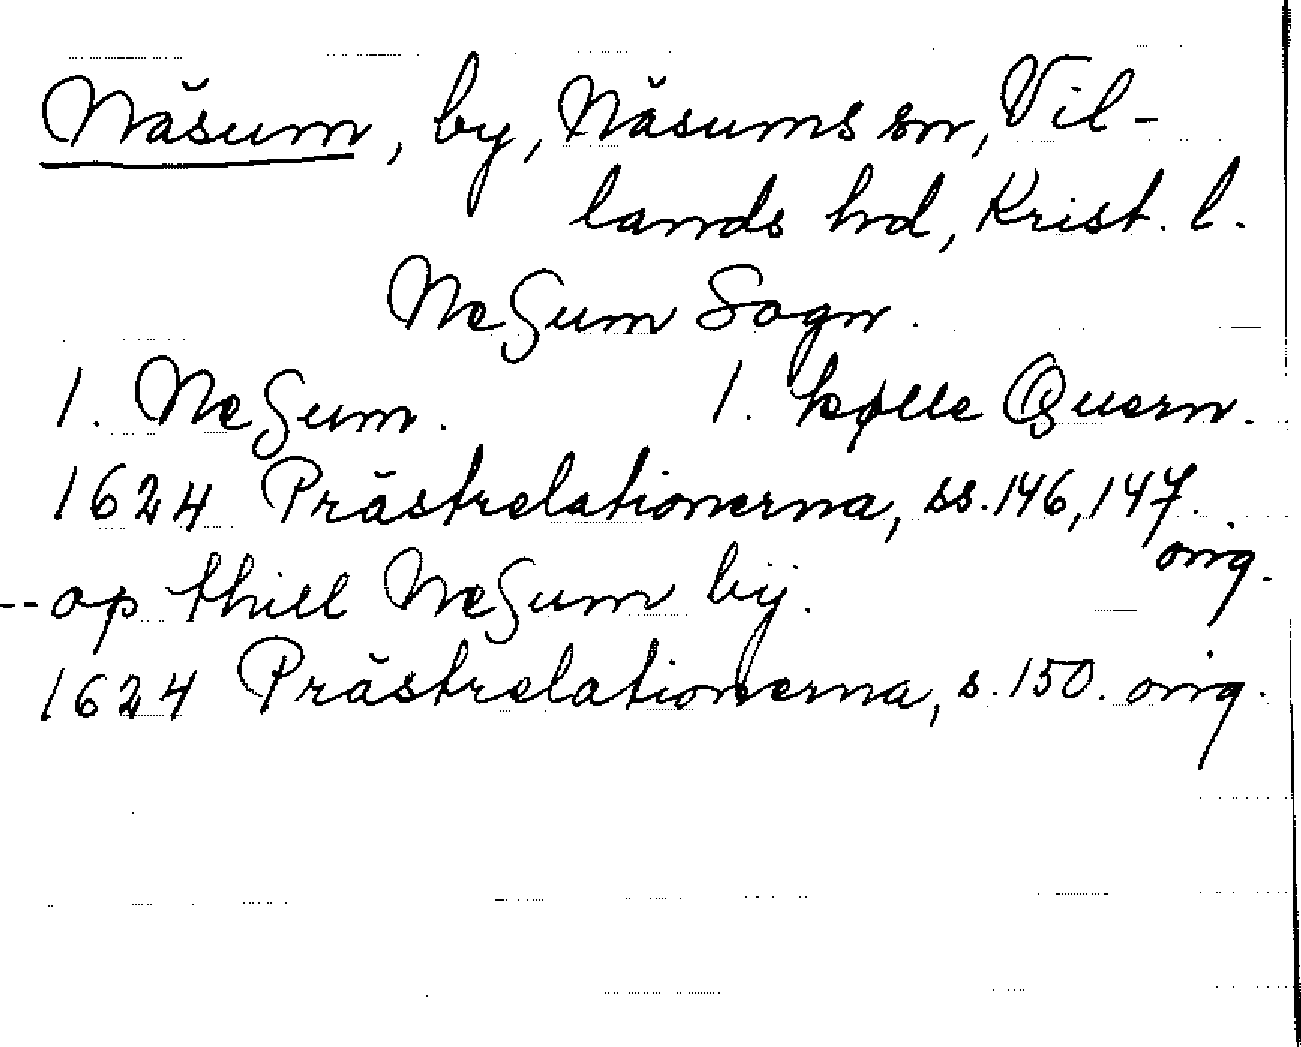 Näsum, by, Näsums sn, Vil-
lands hd, Krist. l.
NeSum Sogn.
1. NeSum. 1. kølle Quern.
1624 Prästrelationerna, ss. 146, 147. orig.
-- op thill NeSum bÿ.
1624 Prästrelationerna, s. 150. orig.